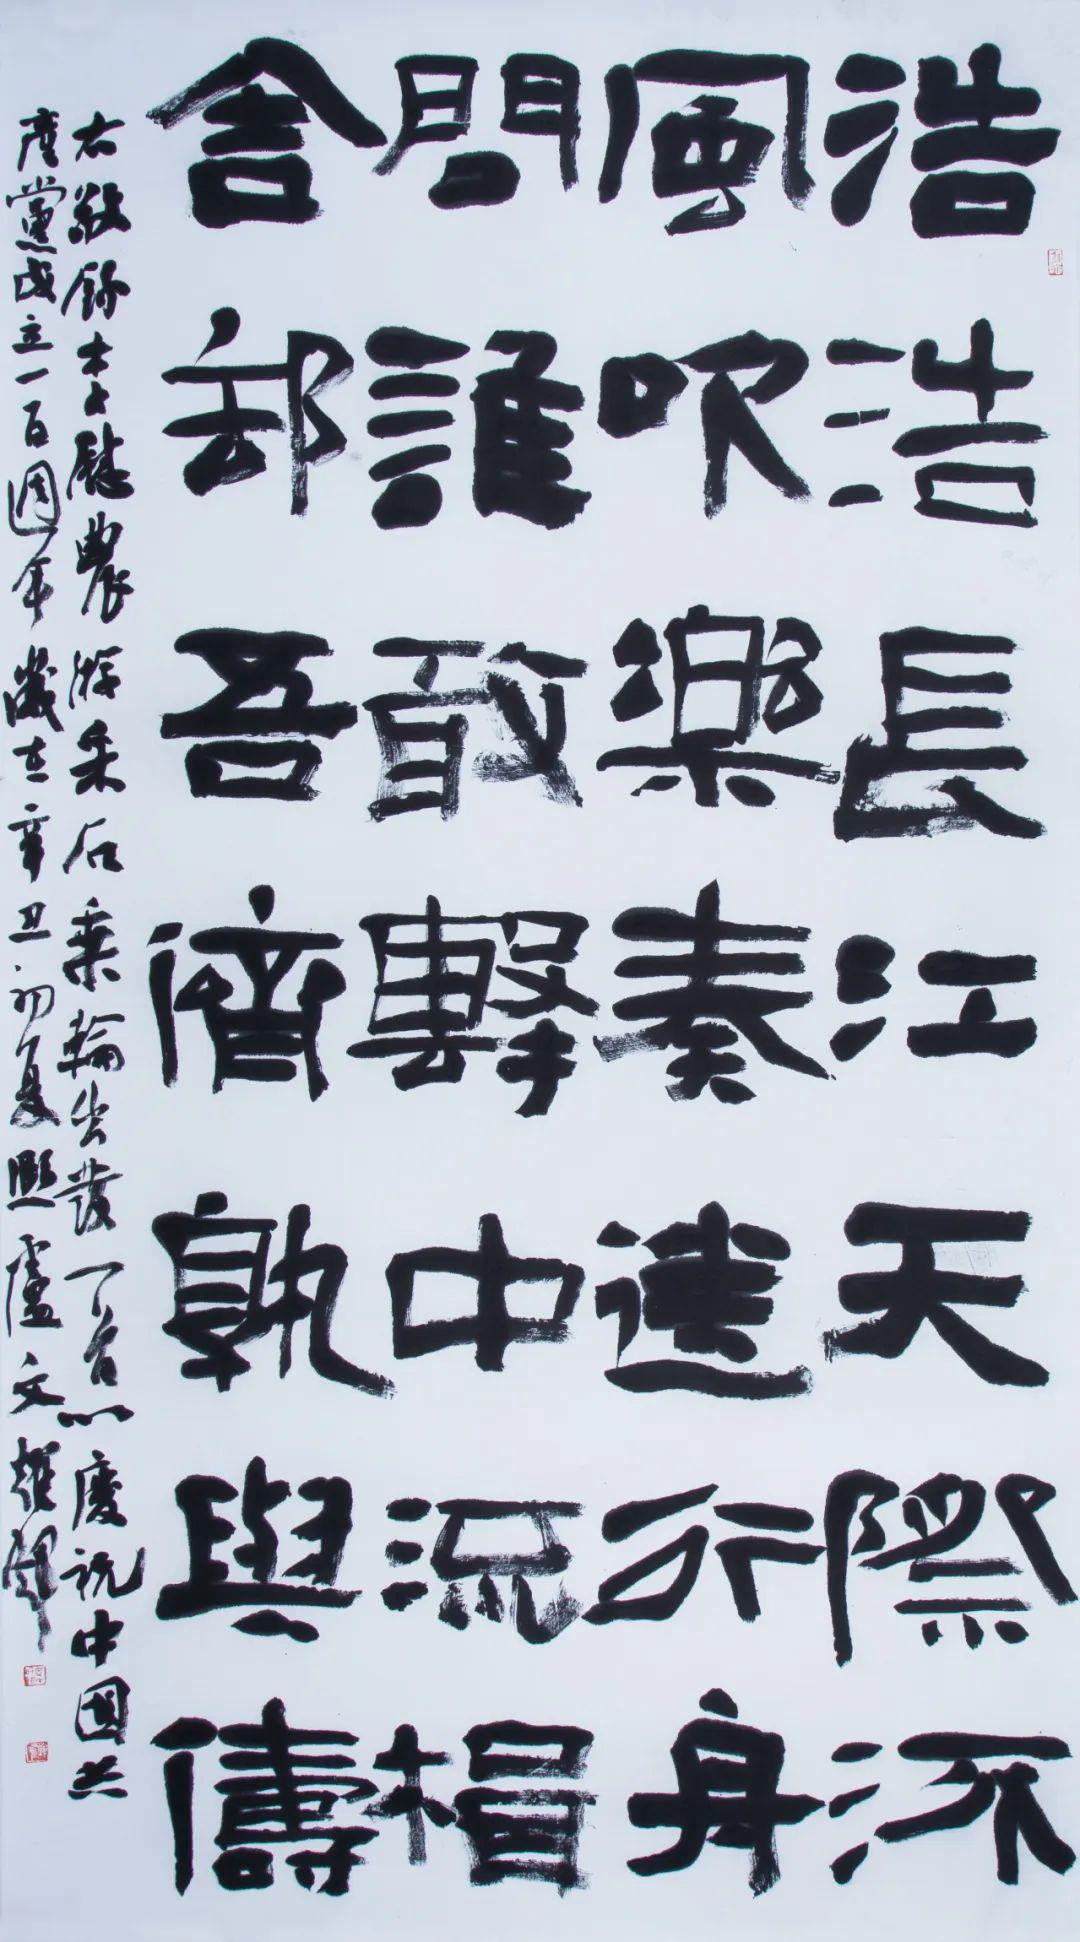 浩浩長江天際流
風吹樂奏送行舟
問誰敢擊中流楫
舍却吾儕孰與儔
右敬錄李慰農游采石乘輪出發一首以慶祝中國共
產黨成立一百週年歲在辛丑初夏熙盧文